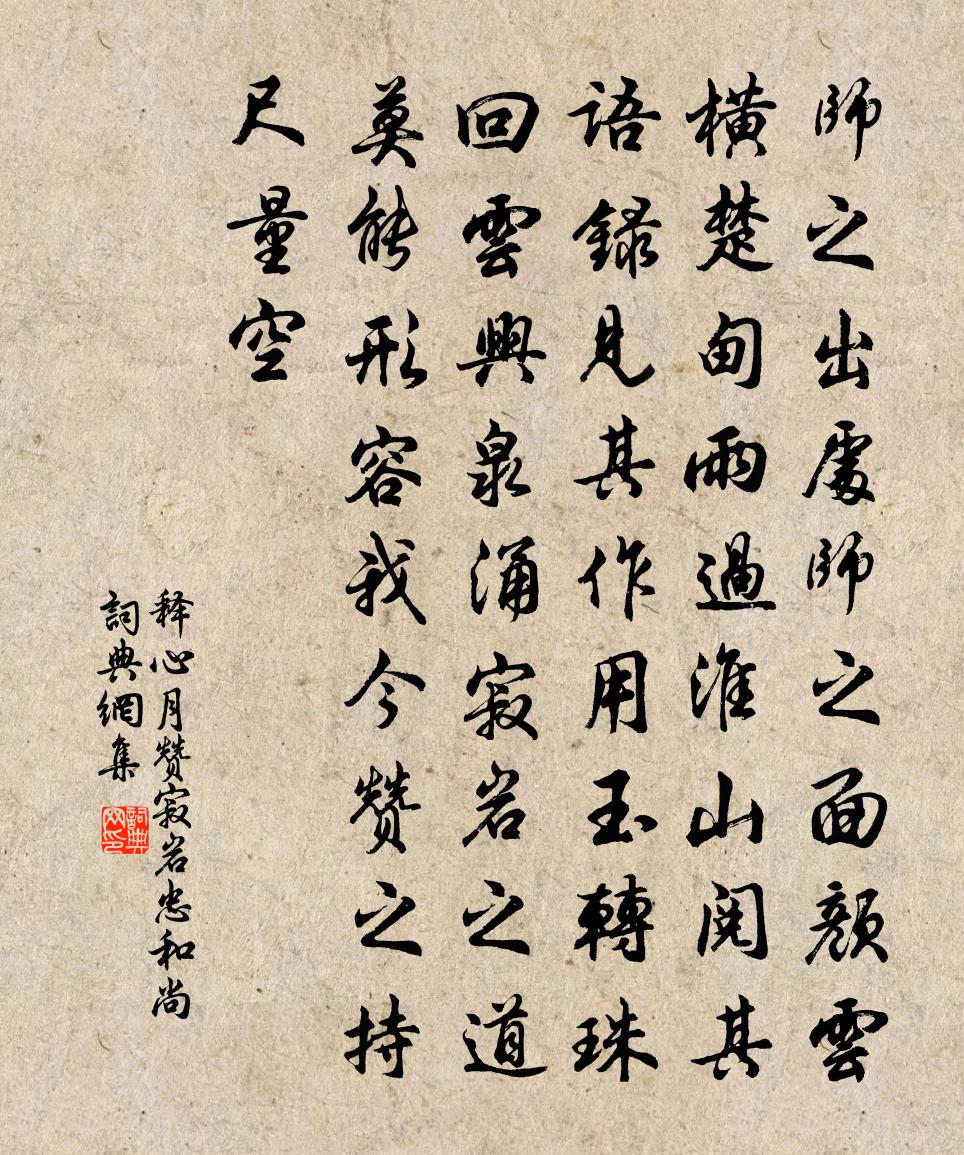 師之出處師之面顏雲
橫楚甸雨過淮山閱其
語錄見其作用玉轉珠
回雲興泉涌寂岩之道
莫能形容我今赞之持
尺量空
释心月赞寂岩忠和尚
詞典網集
詞典網印